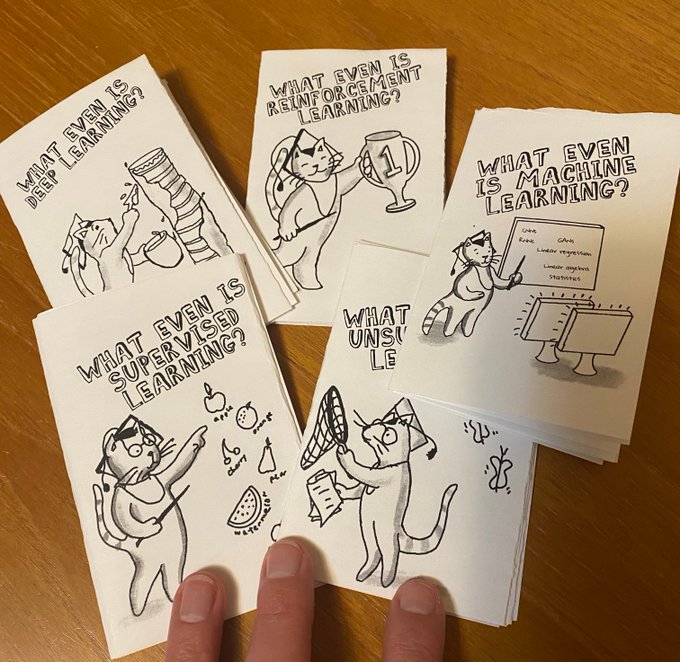 WHAT EVEN IS
DEEP LEARNING?
WHAT EVEN IS
REINFORCEMENT
LEARNING?
1
WHAT EVEN
IS MACHINE
LEARNING?
CNNs
RNNs
GANs
Linear regression
Linear algebra
Statistics
WHAT EVEN IS
SUPERVISED
LEARNING?
apple
orange
cherry
pear
watermelon
WHAT
UNSU
LE